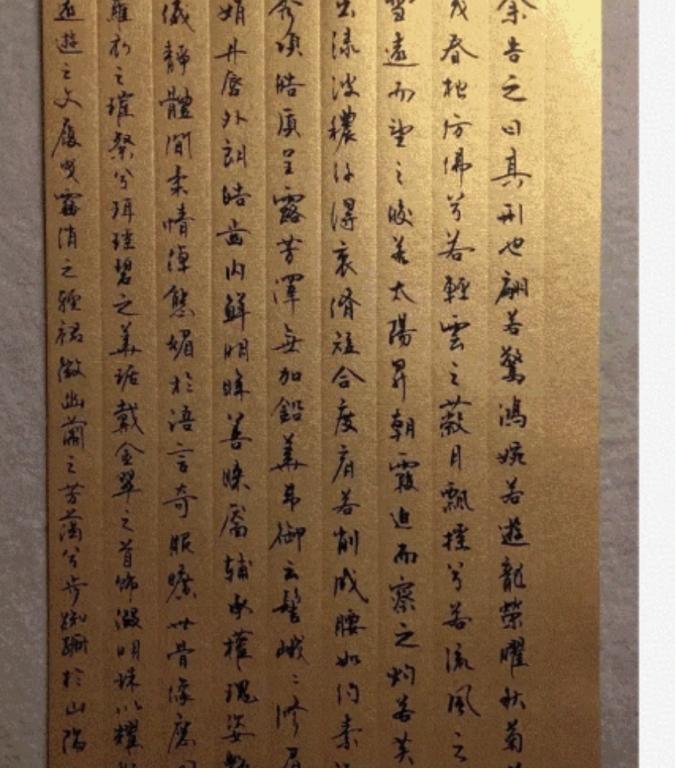 余告之曰其形也翩若驚鴻婉若遊龍榮曜秋菊
茂春松仿佛兮若輕雲之蔽月飄搖兮若流風之
雪遠而望之皎若太陽昇朝霞迫而察之灼若芙
出淥波穠纖得衷脩短合度肩若削成腰如約素
秀項皓質呈露芳澤無加鉛華弗御云髻峨〻修眉
娟丹唇外朗皓齒內鮮明眸善睞靨輔承權瑰姿
儀靜體閒柔情綽態媚於語言奇服曠世骨像應
羅衣之璀粲兮珥瑤碧之華琚戴金翠之首飾綴明珠以耀
遠遊之文履曳霧綃之輕裾微幽蘭之芳藹兮步踟躕於山隅